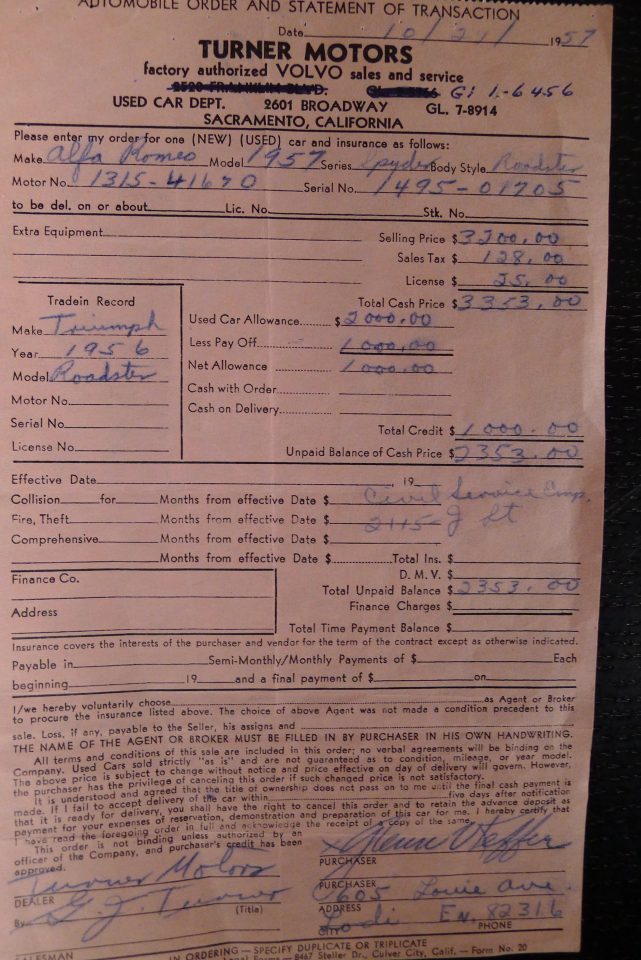 AUTOMOBILE ORDER AND STATEMENT OF TRANSACTION
Date 10/21/ 1957
TURNER MOTORS
factory authorized VOLVO sales and service
2520 FRANKLIN BLVD. GI 1-6456
USED CAR DEPT. 2601 BROADWAY GL. 7-8914
SACRAMENTO, CALIFORNIA
Please enter my order for one (NEW) (USED) car and insurance as follows:
Make Alfa Romeo Model 1957 Series Spyder Body Style Roadster
Motor No. 1315-41670 Serial No. 1495-01705
to be del. on or about Lic. No. Stk. No.
Extra Equipment Selling Price $3200.00
Sales Tax $ 128.00
License $ 25.00
Total Cash Price $3353.00
Tradein Record
Used Car Allowance $2000.00
Make Triumph
Less Pay Off 1000.00
Year 1956
Net Allowance 1000.00
Model Roadster
Cash with Order
Motor No.
Cash on Delivery
Serial No.
Total Credit $1000.00
License No.
Unpaid Balance of Cash Price $2353.00
Effective Date , 19
Collision for Months from effective Date $ Civil Service Emp.
Fire, Theft Months from effective Date $ 2115 J St
Comprehensive Months from effective Date $
Months from effective Date $ Total Ins. $
Finance Co. D. M. V. $
Total Unpaid Balance $2353.00
Address Finance Charges $
Total Time Payment Balance $
Insurance covers the interests of the purchaser and vendor for the term of the contract except as otherwise indicated.
Payable in Semi-Monthly/Monthly Payments of $ Each
beginning 19 and a final payment of $ on
I/we hereby voluntarily choose as Agent or Broker
to procure the insurance listed above. The choice of above Agent was not made a condition precedent to this
sale. Loss, if any, payable to the Seller, his assigns and
THE NAME OF THE AGENT OR BROKER MUST BE FILLED IN BY PURCHASER IN HIS OWN HANDWRITING.
All terms and conditions of this sale are included in this order; no verbal agreements will be binding on the
Company. Used Cars sold strictly "as is" and are not guaranteed as to condition, mileage, or year model.
The above price is subject to change without notice and price effective on day of delivery will govern. However,
the purchaser has the privilege of canceling this order if such changed price is not satisfactory.
It is understood and agreed that the title of ownership does not pass on to me until the final cash payment is
made. If I fail to accept delivery of the car within five days after notification
that it is ready for delivery, you shall have the right to cancel this order and to retain the advance deposit as
payment for your expenses of reservation, demonstration and preparation of this car for me. I hereby certify that
I have read the foregoing order in full and acknowledge the receipt of a copy of the same.
This order is not binding unless authorized by an
officer of the Company, and purchaser's credit has been
approved.
PURCHASER
Turner Motors
DEALER
PURCHASER
605 Louie Ave.
By G. J. Turner (Title)
ADDRESS
Lodi En. 82316
CITY PHONE
SALESMAN
IN ORDERING—SPECIFY DUPLICATE OR TRIPLICATE
Legal Forms—8467 Steller Dr., Culver City, Calif. — Form No. 20